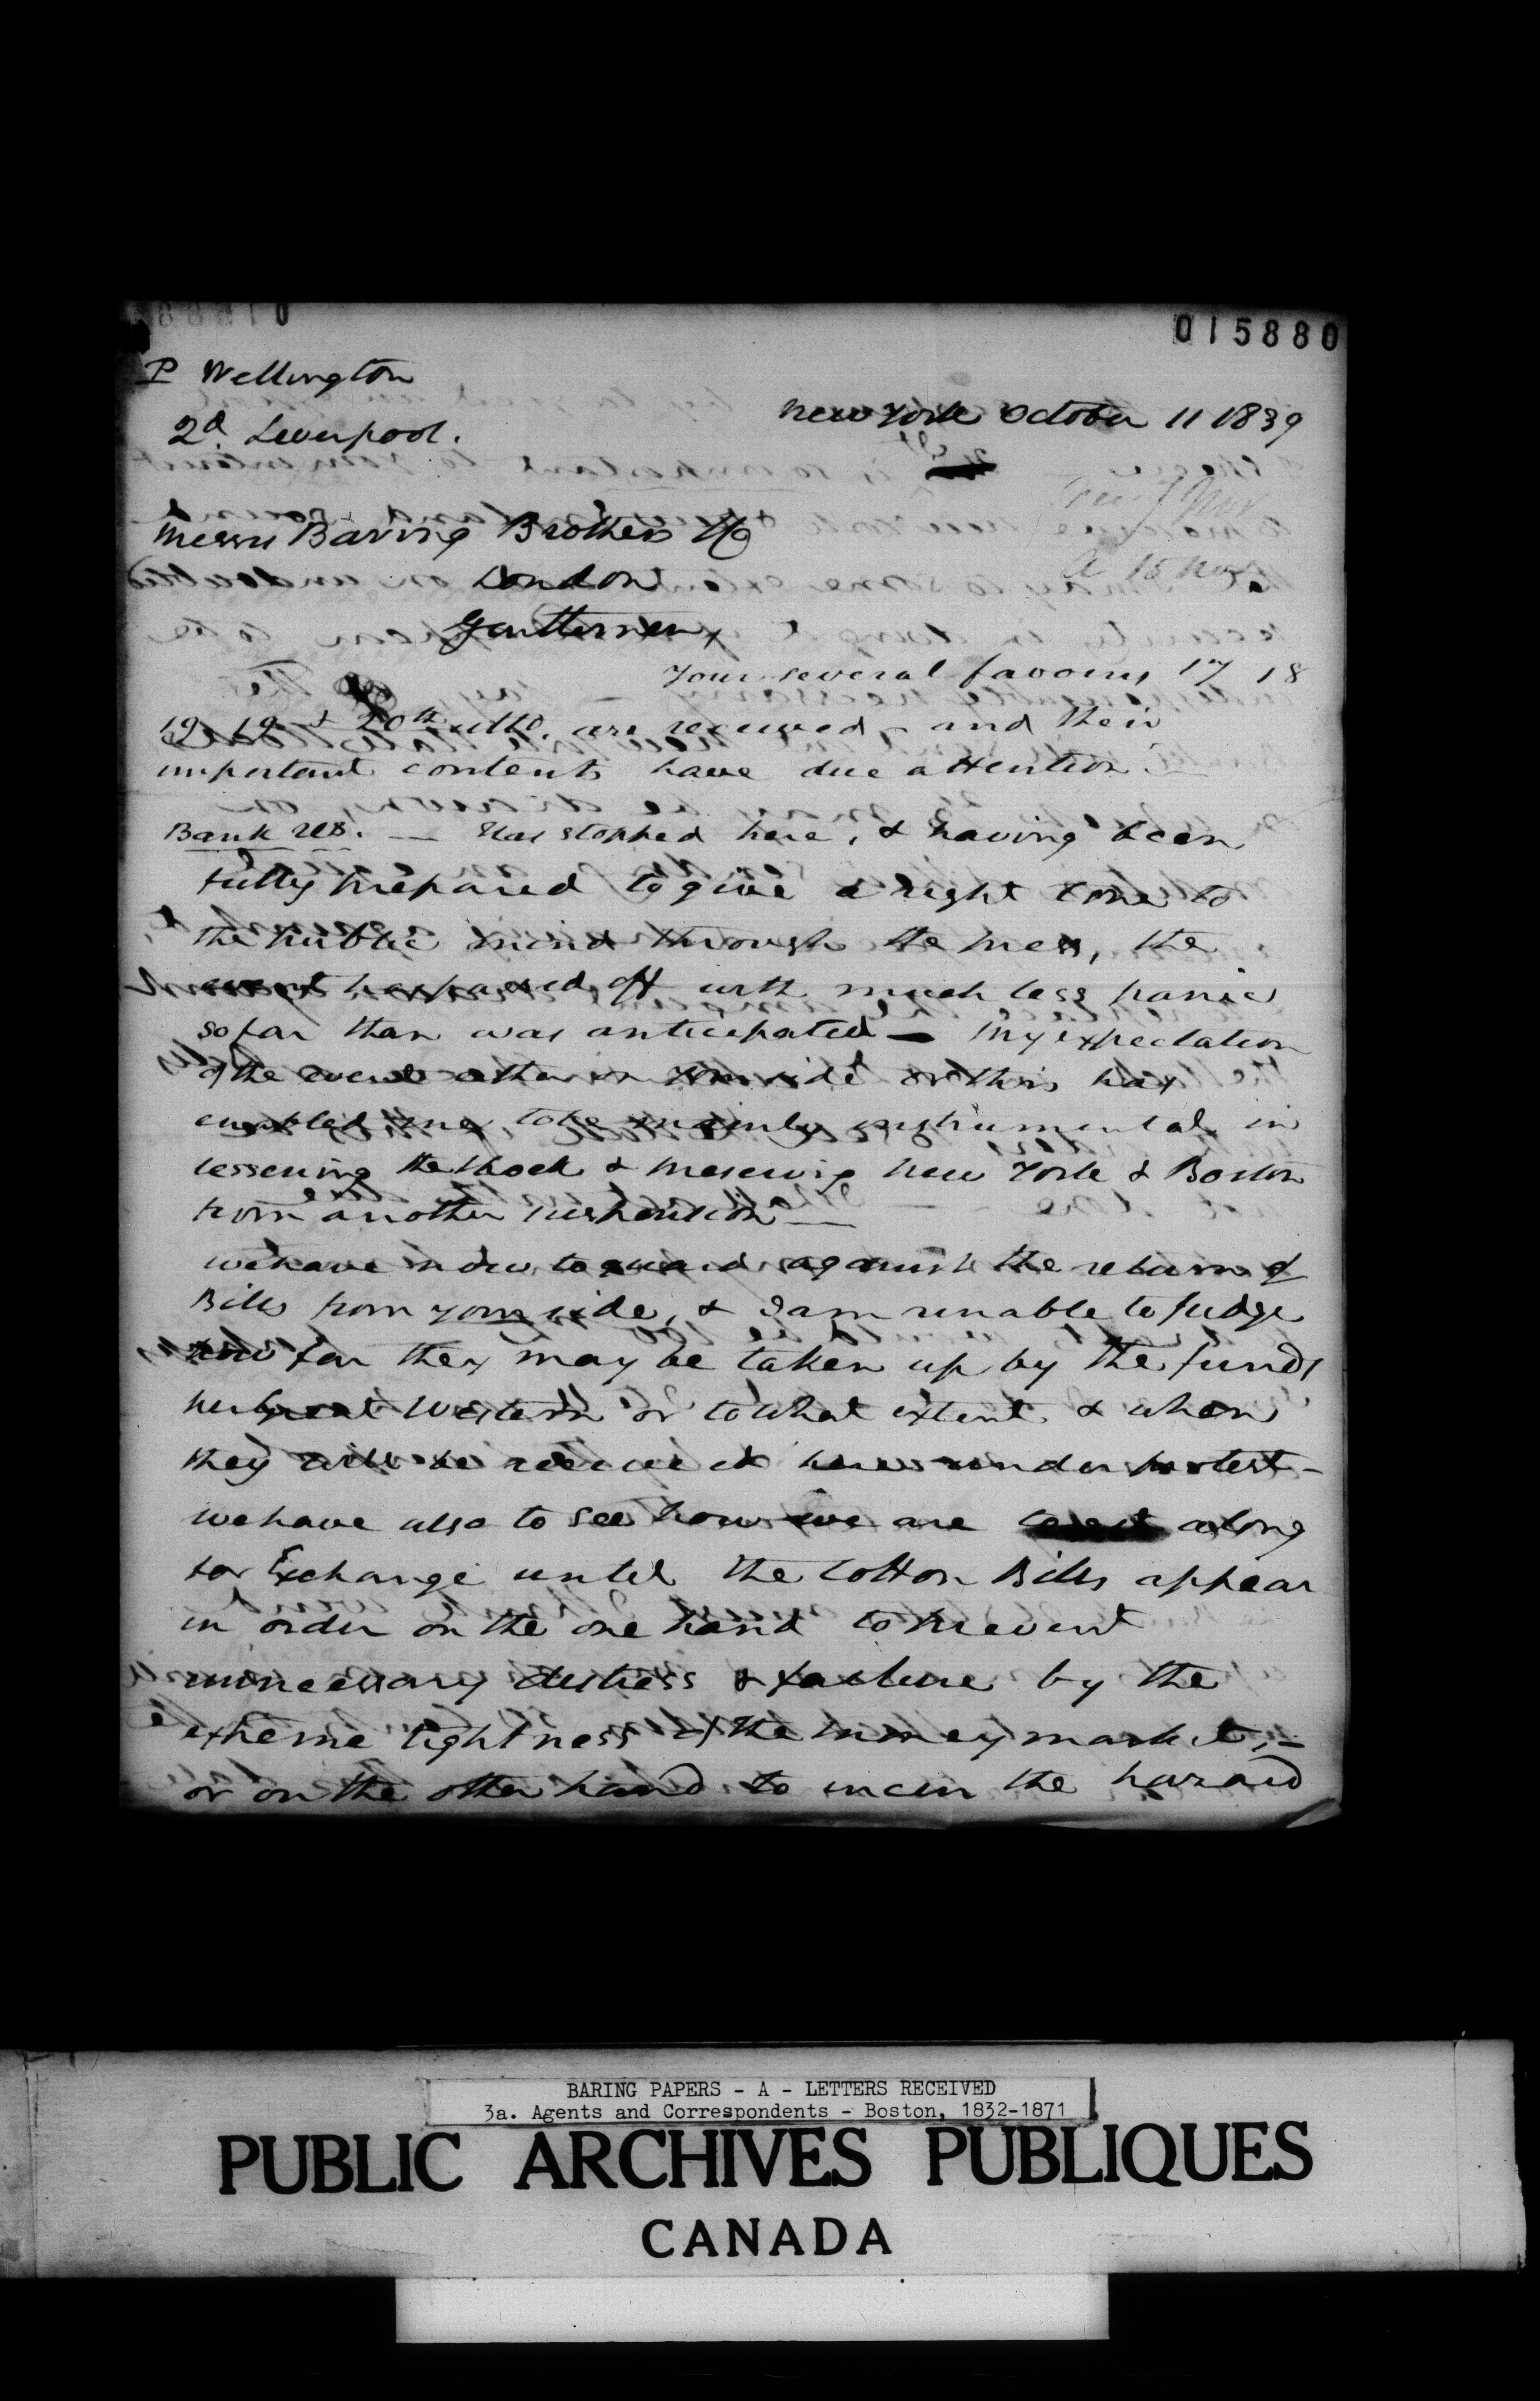 015880
P Wellington
2d. Liverpool.
New York October 11 1839
Messrs Baring Brothers & Co
London
Gentlemen,
Your several favours 17 18
19 19 & 20th ulto. are received - and their
important contents have due attention. -
Bank US. - Has stopped here, & having been
fully prepared to give a right tone to
the public mind through the press, the
event has passed off with much less panic
so far than was anticipated - My expectation
of the event either on your side or this has
enabled me to be mainly instrumental in
lessening the shock & preserving New York & Boston
from another suspension -
we have now to guard against the return of
Bills from your side, & I am unable to judge
how far they may be taken up by the funds
per Great Western or to what extent & when
they will be received here under protest -
we have also to see how we are to get along
for Exchange until the Cotton Bills appear
in order on the one hand to prevent
unnecessary distress & failure by the
extreme tightness of the money market, -
or on the other hand to incur the hazard
BARING PAPERS - A - LETTERS RECEIVED
3a. Agents and Correspondents - Boston, 1832-1871
PUBLIC ARCHIVES PUBLIQUES
CANADA